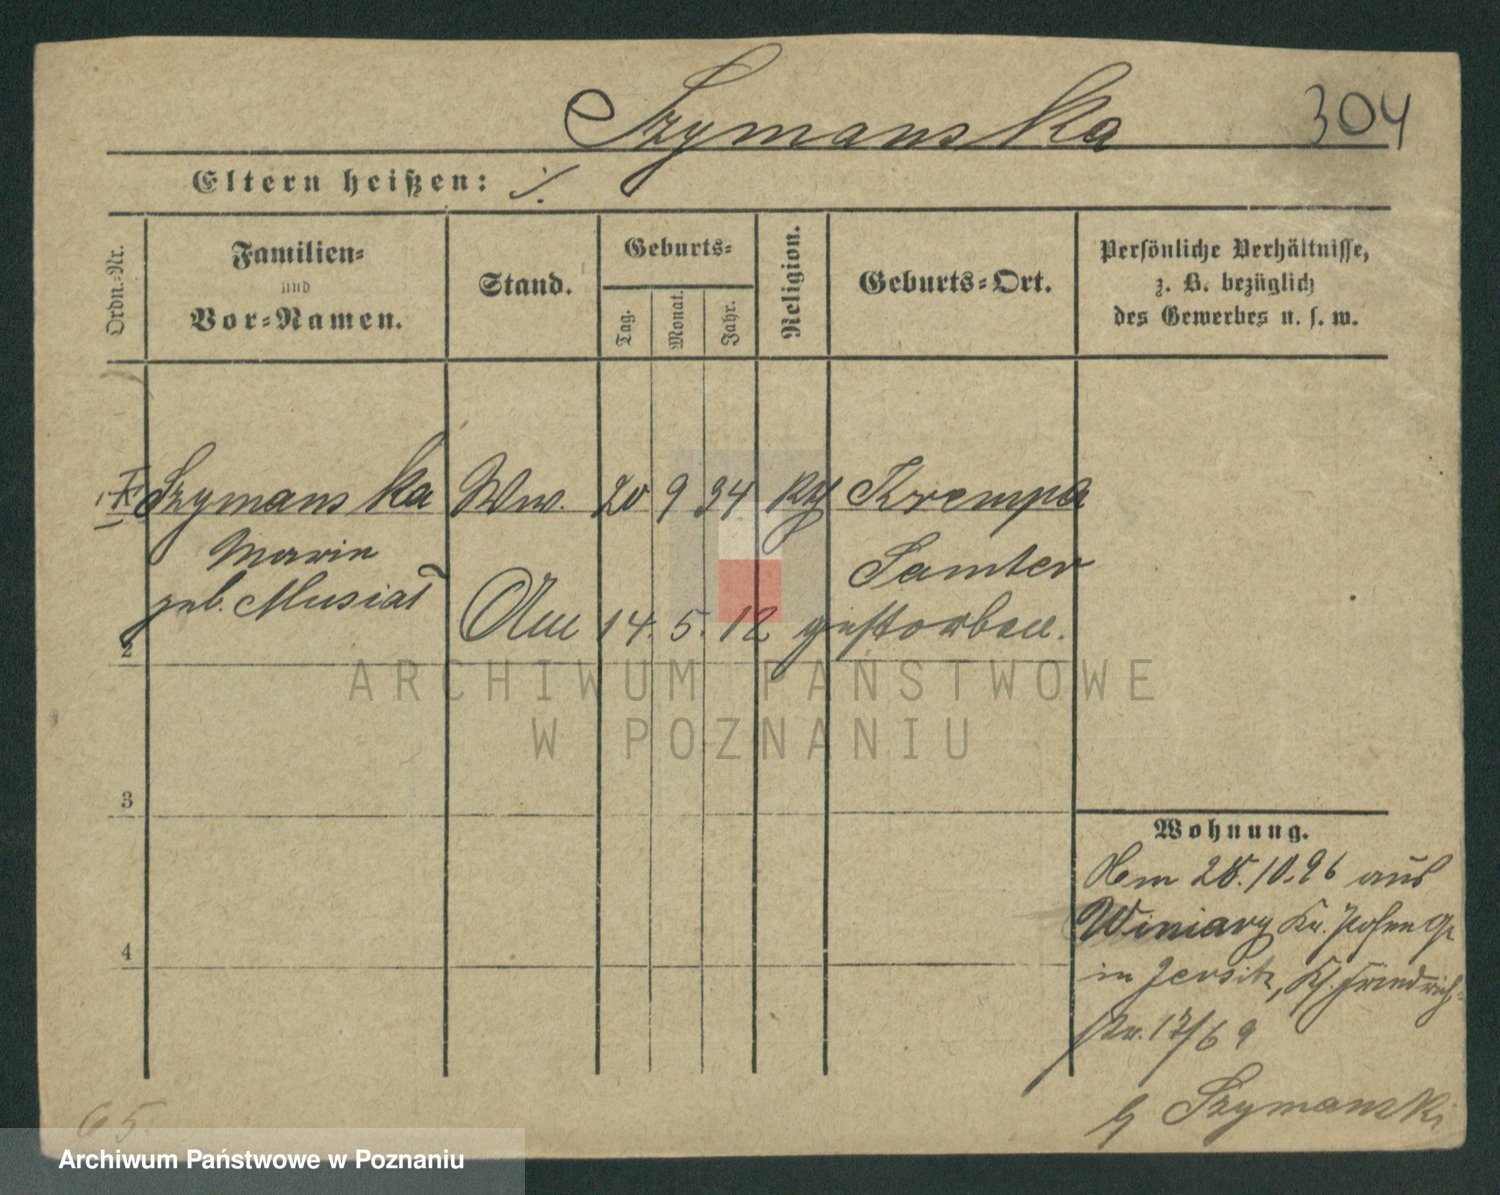 Szymanska
304
Eltern heißen: ./.
Ordn.-Nr.
Familien-
und
Vor-Namen.
Stand.
Geburts-
Tag.
Monat.
Jahr.
Religion.
Geburts-Ort.
Persönliche Verhältnisse,
z. B. bezüglich
des Gewerbes u. s. w.
Szymanska Ww. 20 9 34 Krempa
Marie Samter
geb. Musiał
Am 14. 5. 12 gestorben.
2
ARCHIWUM PAŃSTWOWE
W POZNANIU
3
4
Wohnung.
28.10.96 aus
Winiary Kr. Posen
in Jersitz, Kl. Friedrich-
str. 17/69
Szymanski
65.
Archiwum Państwowe w Poznaniu